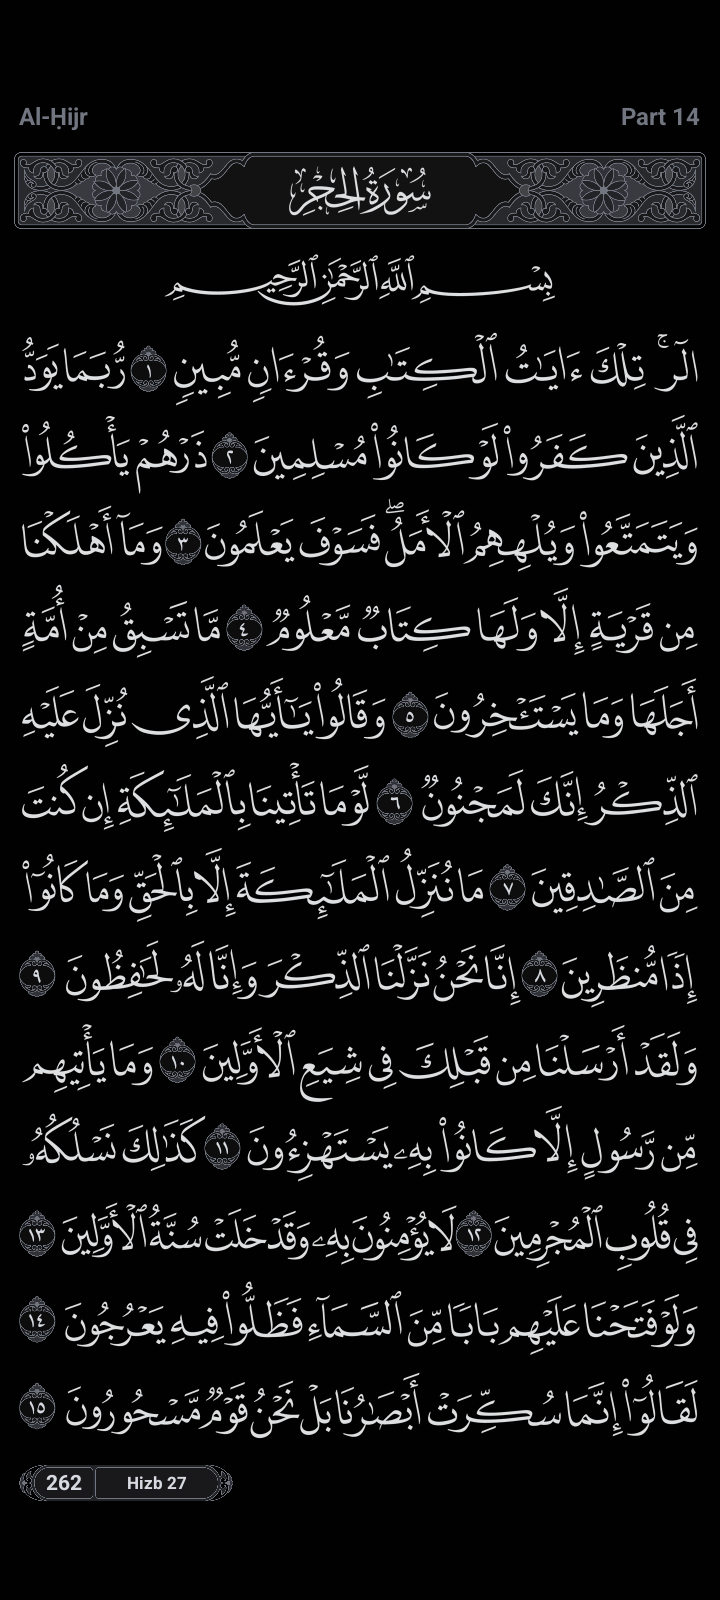 Al-Ḥijr
Part 14
سُورَةُ الحِجْرِ
بِسْمِ ٱللَّهِ ٱلرَّحْمَٰنِ ٱلرَّحِيمِ
الٓرۚ تِلْكَ ءَايَٰتُ ٱلْكِتَٰبِ وَقُرْءَانٍ مُّبِينٍ ١ رُّبَمَا يَوَدُّ
ٱلَّذِينَ كَفَرُوا۟ لَوْ كَانُوا۟ مُسْلِمِينَ ٢ ذَرْهُمْ يَأْكُلُوا۟
وَيَتَمَتَّعُوا۟ وَيُلْهِهِمُ ٱلْأَمَلُۖ فَسَوْفَ يَعْلَمُونَ ٣ وَمَآ أَهْلَكْنَا
مِن قَرْيَةٍ إِلَّا وَلَهَا كِتَابٌ مَّعْلُومٌ ٤ مَّا تَسْبِقُ مِنْ أُمَّةٍ
أَجَلَهَا وَمَا يَسْتَـْٔخِرُونَ ٥ وَقَالُوا۟ يَٰٓأَيُّهَا ٱلَّذِى نُزِّلَ عَلَيْهِ
ٱلذِّكْرُ إِنَّكَ لَمَجْنُونٌ ٦ لَّوْ مَا تَأْتِينَا بِٱلْمَلَٰٓئِكَةِ إِن كُنتَ
مِنَ ٱلصَّٰدِقِينَ ٧ مَا نُنَزِّلُ ٱلْمَلَٰٓئِكَةَ إِلَّا بِٱلْحَقِّ وَمَا كَانُوٓا۟
إِذًا مُّنظَرِينَ ٨ إِنَّا نَحْنُ نَزَّلْنَا ٱلذِّكْرَ وَإِنَّا لَهُۥ لَحَٰفِظُونَ ٩
وَلَقَدْ أَرْسَلْنَا مِن قَبْلِكَ فِى شِيَعِ ٱلْأَوَّلِينَ ١٠ وَمَا يَأْتِيهِم
مِّن رَّسُولٍ إِلَّا كَانُوا۟ بِهِۦ يَسْتَهْزِءُونَ ١١ كَذَٰلِكَ نَسْلُكُهُۥ
فِى قُلُوبِ ٱلْمُجْرِمِينَ ١٢ لَا يُؤْمِنُونَ بِهِۦ وَقَدْ خَلَتْ سُنَّةُ ٱلْأَوَّلِينَ ١٣
وَلَوْ فَتَحْنَا عَلَيْهِم بَابًا مِّنَ ٱلسَّمَآءِ فَظَلُّوا۟ فِيهِ يَعْرُجُونَ ١٤
لَقَالُوٓا۟ إِنَّمَا سُكِّرَتْ أَبْصَٰرُنَا بَلْ نَحْنُ قَوْمٌ مَّسْحُورُونَ ١٥
262 Hizb 27